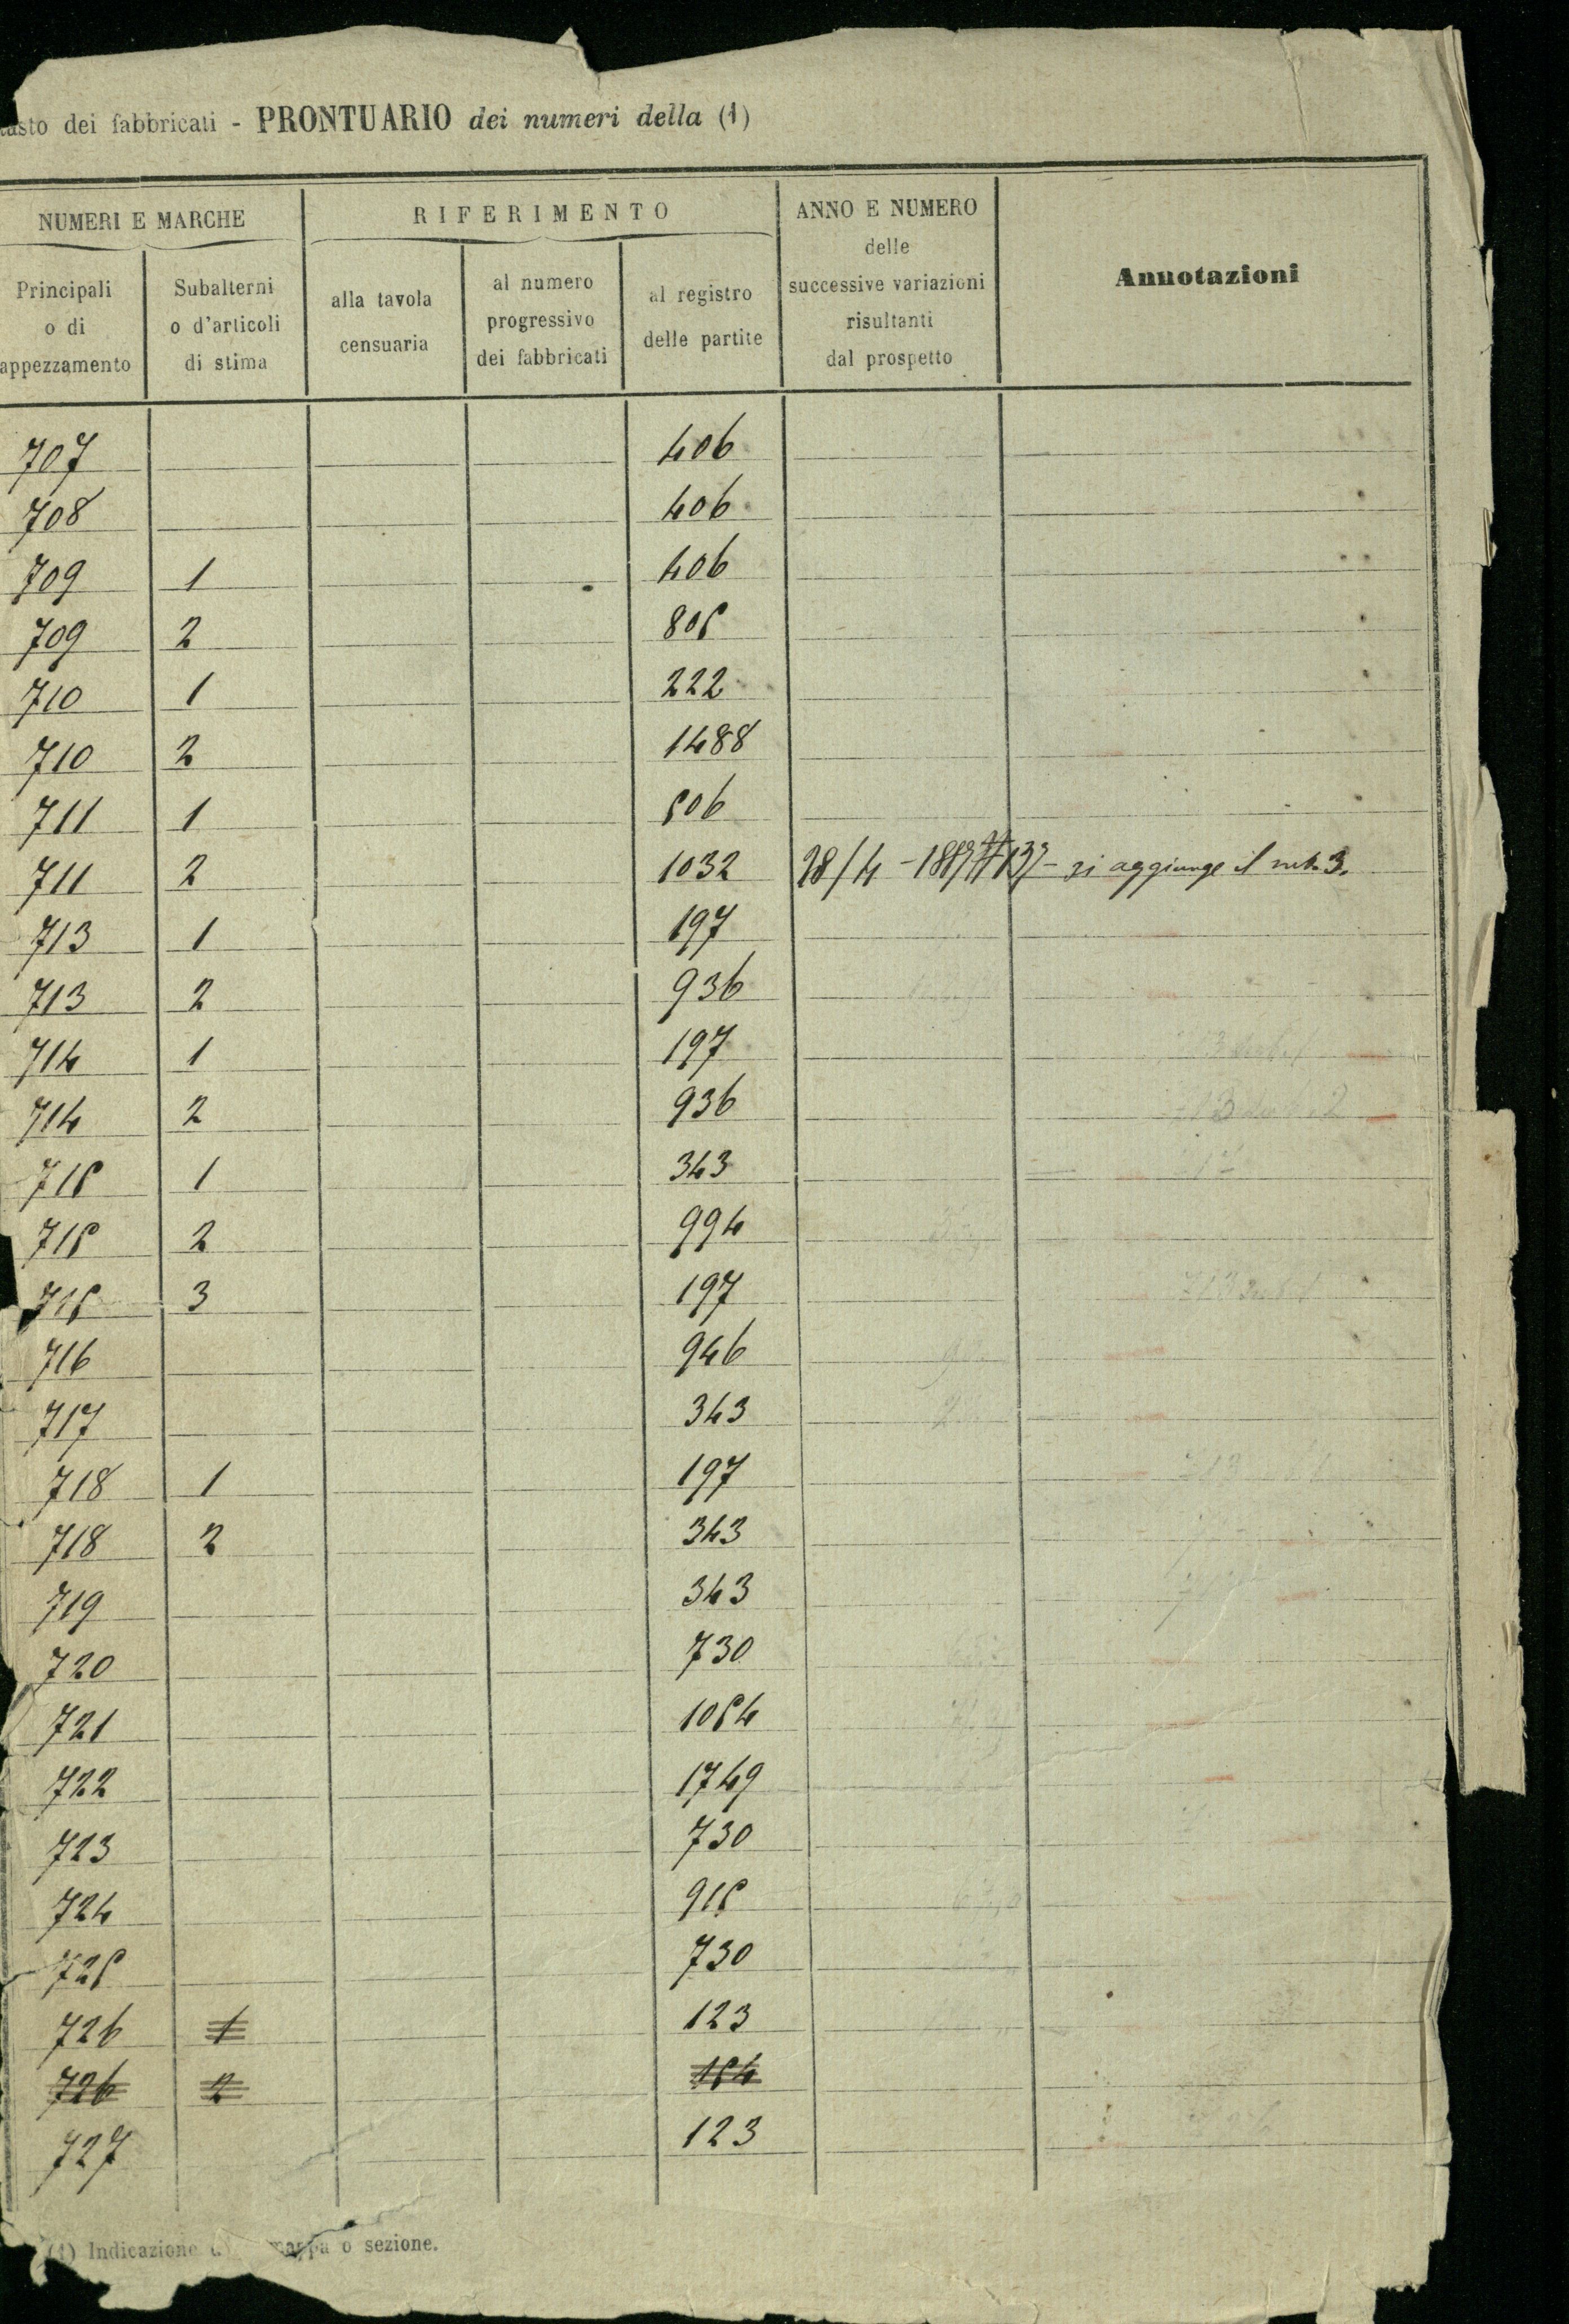 dei fabbricati - PRONTUARIO dei numeri della (1)
NUMERI E MARCHE
RIFERIMENTO
ANNO E NUMERO
delle
successive variazioni
risultanti
dal prospetto
Annotazioni
Principali
o di
appezzamento
Subalterni
o d'articoli
di stima
alla tavola
censuaria
al numero
progressivo
dei fabbricati
al registro
delle partite
707 406
708 406
709 1 406
709 2 805
710 1 222
710 2 1488
711 1 506
711 2 1032 28/4 - si aggiunge il sub. 3.
713 1 197
713 2 936
714 1 197
714 2 936
715 1 343
715 2 994
715 3 197
716 946
717 343
718 1 197
718 2 343
719 343
720 730
721 1054
722 1749
723 730
724 915
725 730
726 1 123
726 2 154
727 123
(1) Indicazione mappa o sezione.